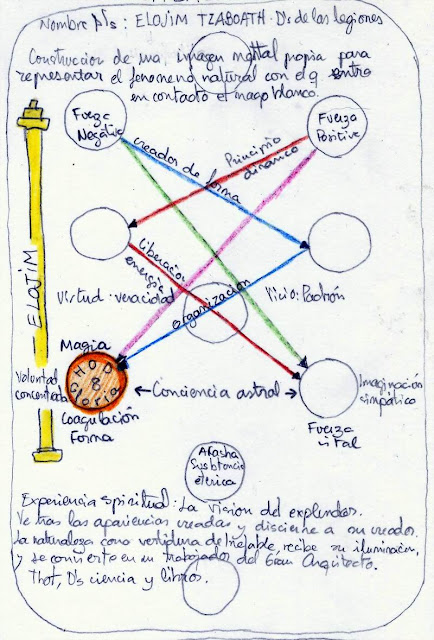 Nombre D's : ELOJIM TZABOATH · D's de las legiones
Construccion de una imagen mental propia para
representar el fenomeno natural con el q entra
en contacto el mago blanco.
Fuerza
Negativa
Fuerza
Positive
creador de forma
Principio
dinamico
Liberacion
energia
organizacion
ELOJIM
Virtud · veracidad
Vicio: Padrón
Magia
HOD
8
Gloria
Voluntad
concentrada
Coagulación
Forma
←Conciencia astral→
Imaginación
simpático
Fuerza
vital
Akasha
Sysbtancia
eterica
Experiencia Spiritual : La vision del explendor.
Ve tras las apariencias creadas y discierne a su creador.
La naturaleza como vertidura de Inefable, recibe su iluminacion,
y se convierte en un trabajador del Gran Arquitecto.
Thot, D's ciencia y libros.